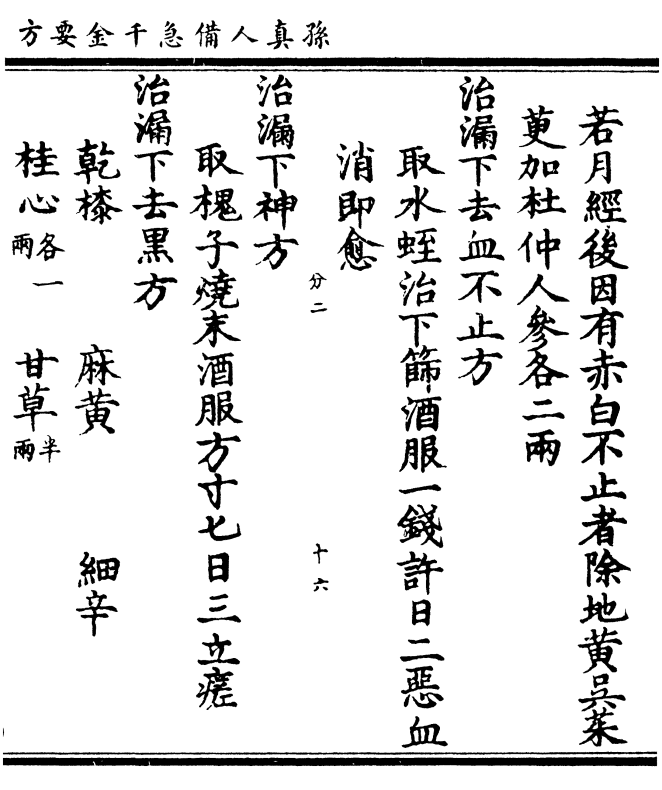 孫真人備急千金要方
若月經後因有赤白不止者除地黄吳茱
萸加杜仲人參各二兩
治漏下去血不止方
取水蛭治下篩酒服一錢許日二惡血
消即愈
分二
十六
治漏下神方
取槐子燒末酒服方寸匕日三立瘥
治漏下去黒方
乾漆 麻黄 細辛
桂心各一兩 甘草半兩